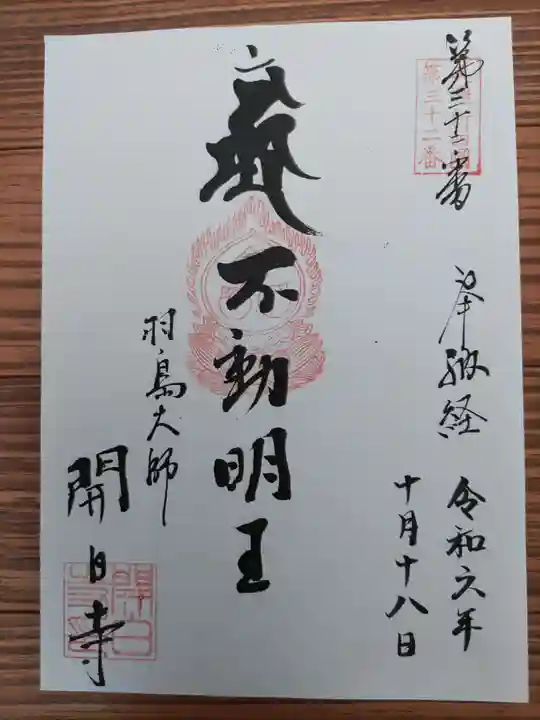 第三十二番
第三十二番
奉納経
令和六年
十月十八日
不動明王
羽島大師
開白寺